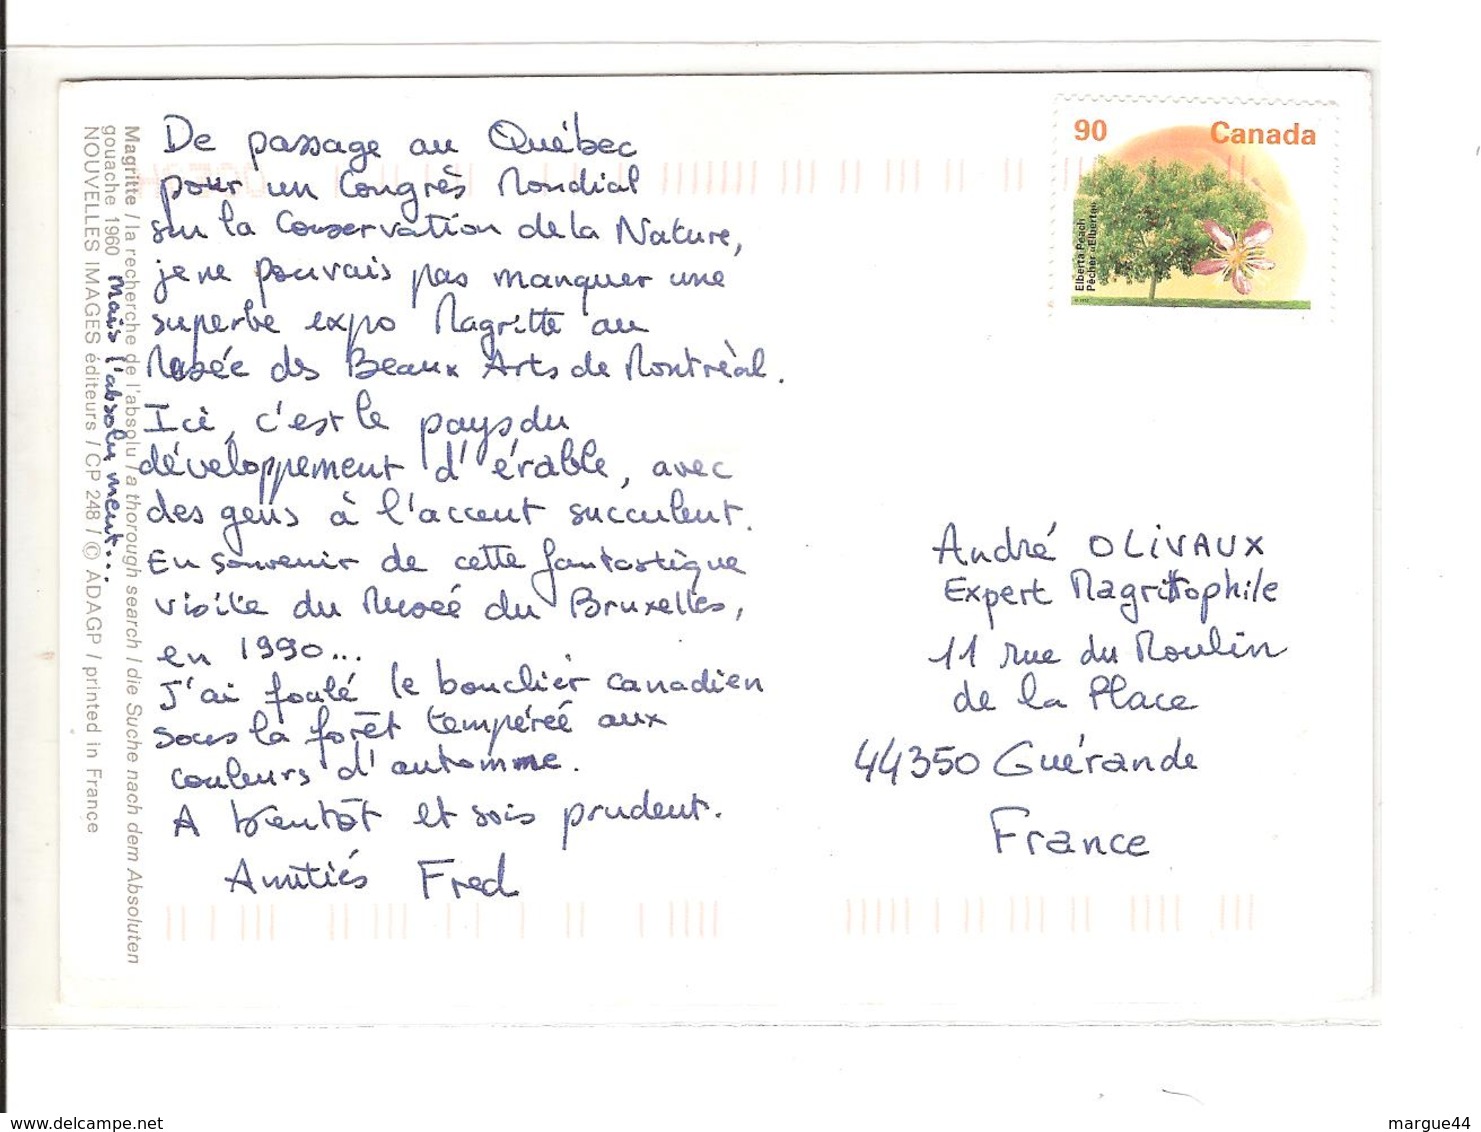 De passage au Québec
pour un Congrès Mondial
sur la Conservation de la Nature,
je ne pouvais pas manquer une
superbe expo Magritte au
Musée des Beaux Arts de Montréal.
Ici, c'est le pays du
développement d'érable, avec
des gens à l'accent succulent.
En souvenir de cette fantastique
visite du Musée du Bruxelles,
en 1990...
J'ai foulé le bouclier canadien
sous la forêt tempérée aux
couleurs d'automne.
A bientôt et sois prudent.
Amitiés Fred
Magritte / la recherche de l'absolu / a thorough search / die Suche nach dem Absoluten
gouache 1960 mais l'absolument...
NOUVELLES IMAGES éditeurs / CP 248 / © ADAGP / printed in France
90 Canada
Elberta Peach
Pêcher «Elberta»
André OLIVAUX
Expert Magrittophile
11 rue du Moulin
de la Place
44350 Guérande
France
www.delcampe.net
margue44